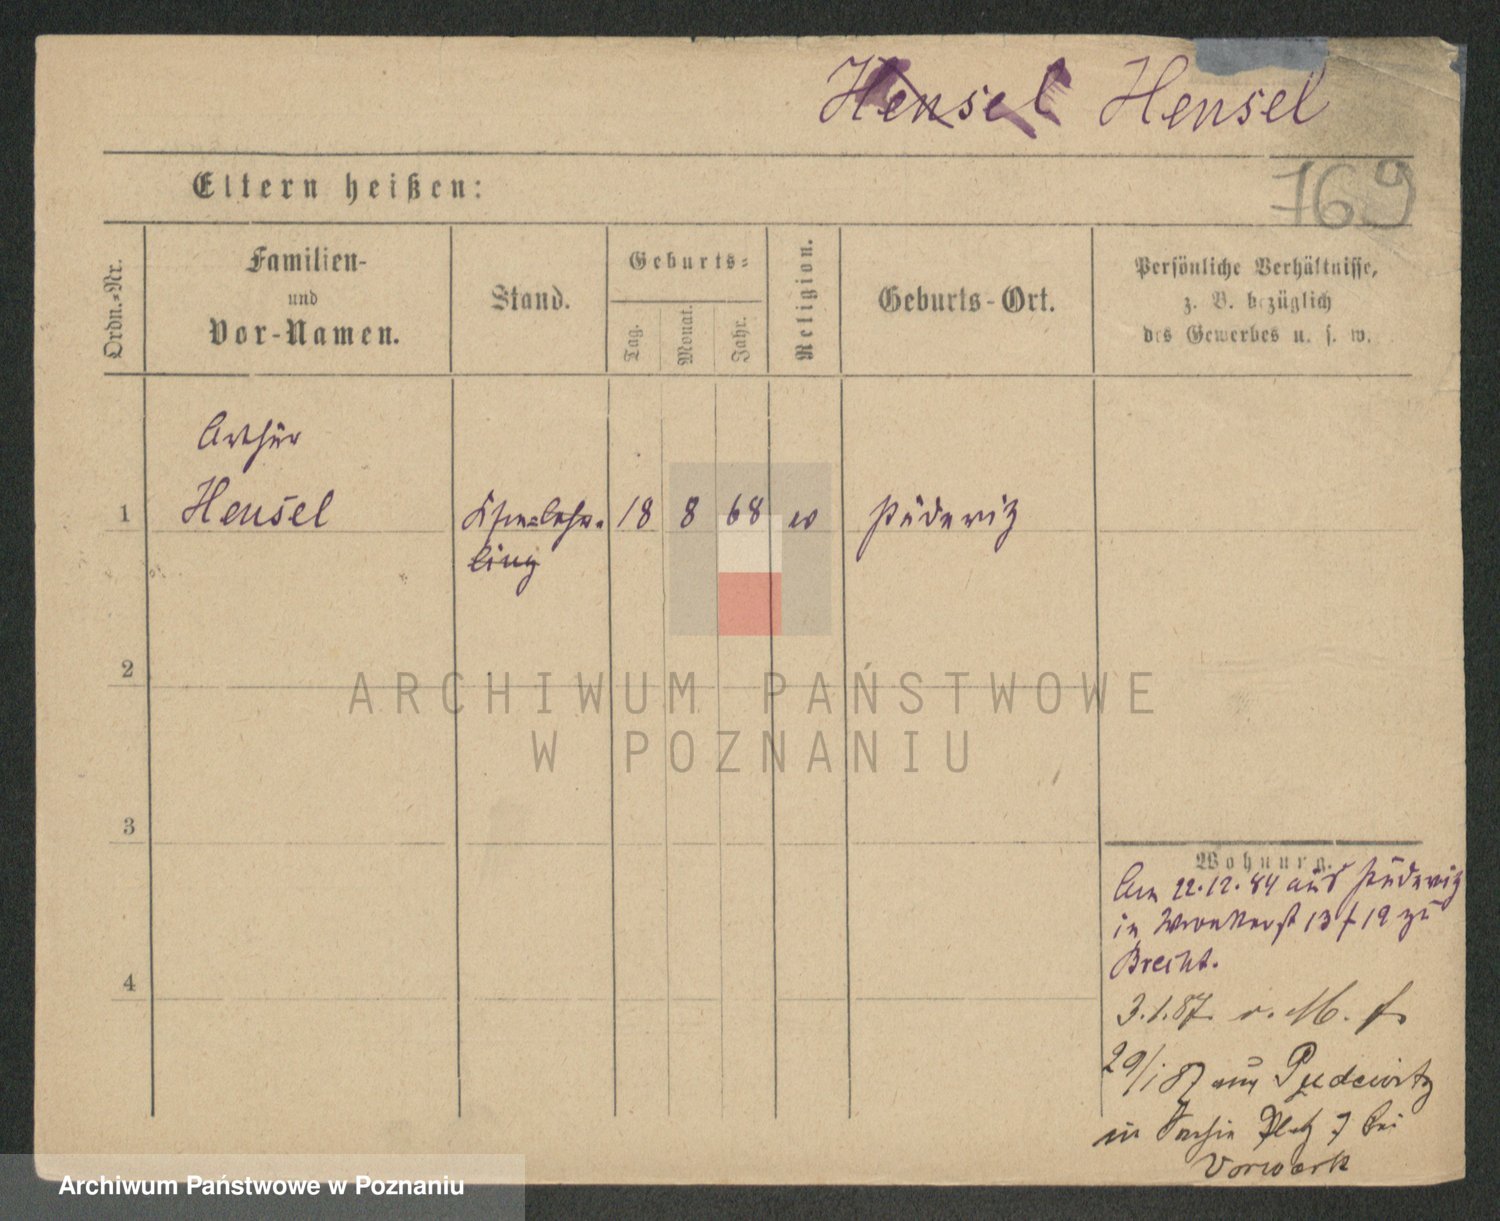 Hensel Hensel
Eltern heißen:
169
Ordn.=Nr.
Familien-
und
Vor-Namen.
Stand.
Geburts=
Tag.
Monat.
Jahr.
Religion.
Geburts-Ort.
Persönliche Verhältnisse,
z. B. bezüglich
des Gewerbes u. s. w.
Arthur
1 Hensel 18 8 68 Pudewitz
ling
2
ARCHIWUM PAŃSTWOWE
W POZNANIU
3
Wohnung.
Am 22.12.84 aus Pudewitz
in Wronkerst 13 19 zu
Brecht.
4
3.1.87. v. M.
29/1 87 aus Pudewitz
in Platz bei
Vorwerk
Archiwum Państwowe w Poznaniu